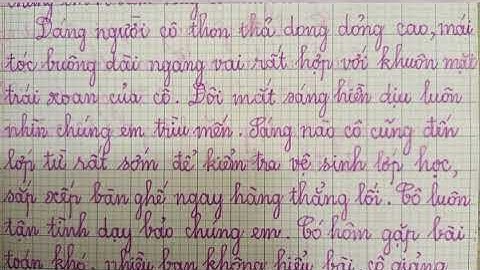 Dáng người cô thon thả dong dỏng cao, mái
tóc buông dài ngang vai rất hợp với khuôn mặt
trái xoan của cô. Đôi mắt sáng hiền dịu luôn
nhìn chúng em trìu mến. Sáng nào cô cũng đến
lớp từ rất sớm để kiểm tra vệ sinh lớp học,
sắp xếp bàn ghế ngay hàng thẳng lối. Cô luôn
tận tình dạy bảo chúng em. Có hôm gặp bài
toán khó, nhiều bạn không hiểu bài, cô giảng